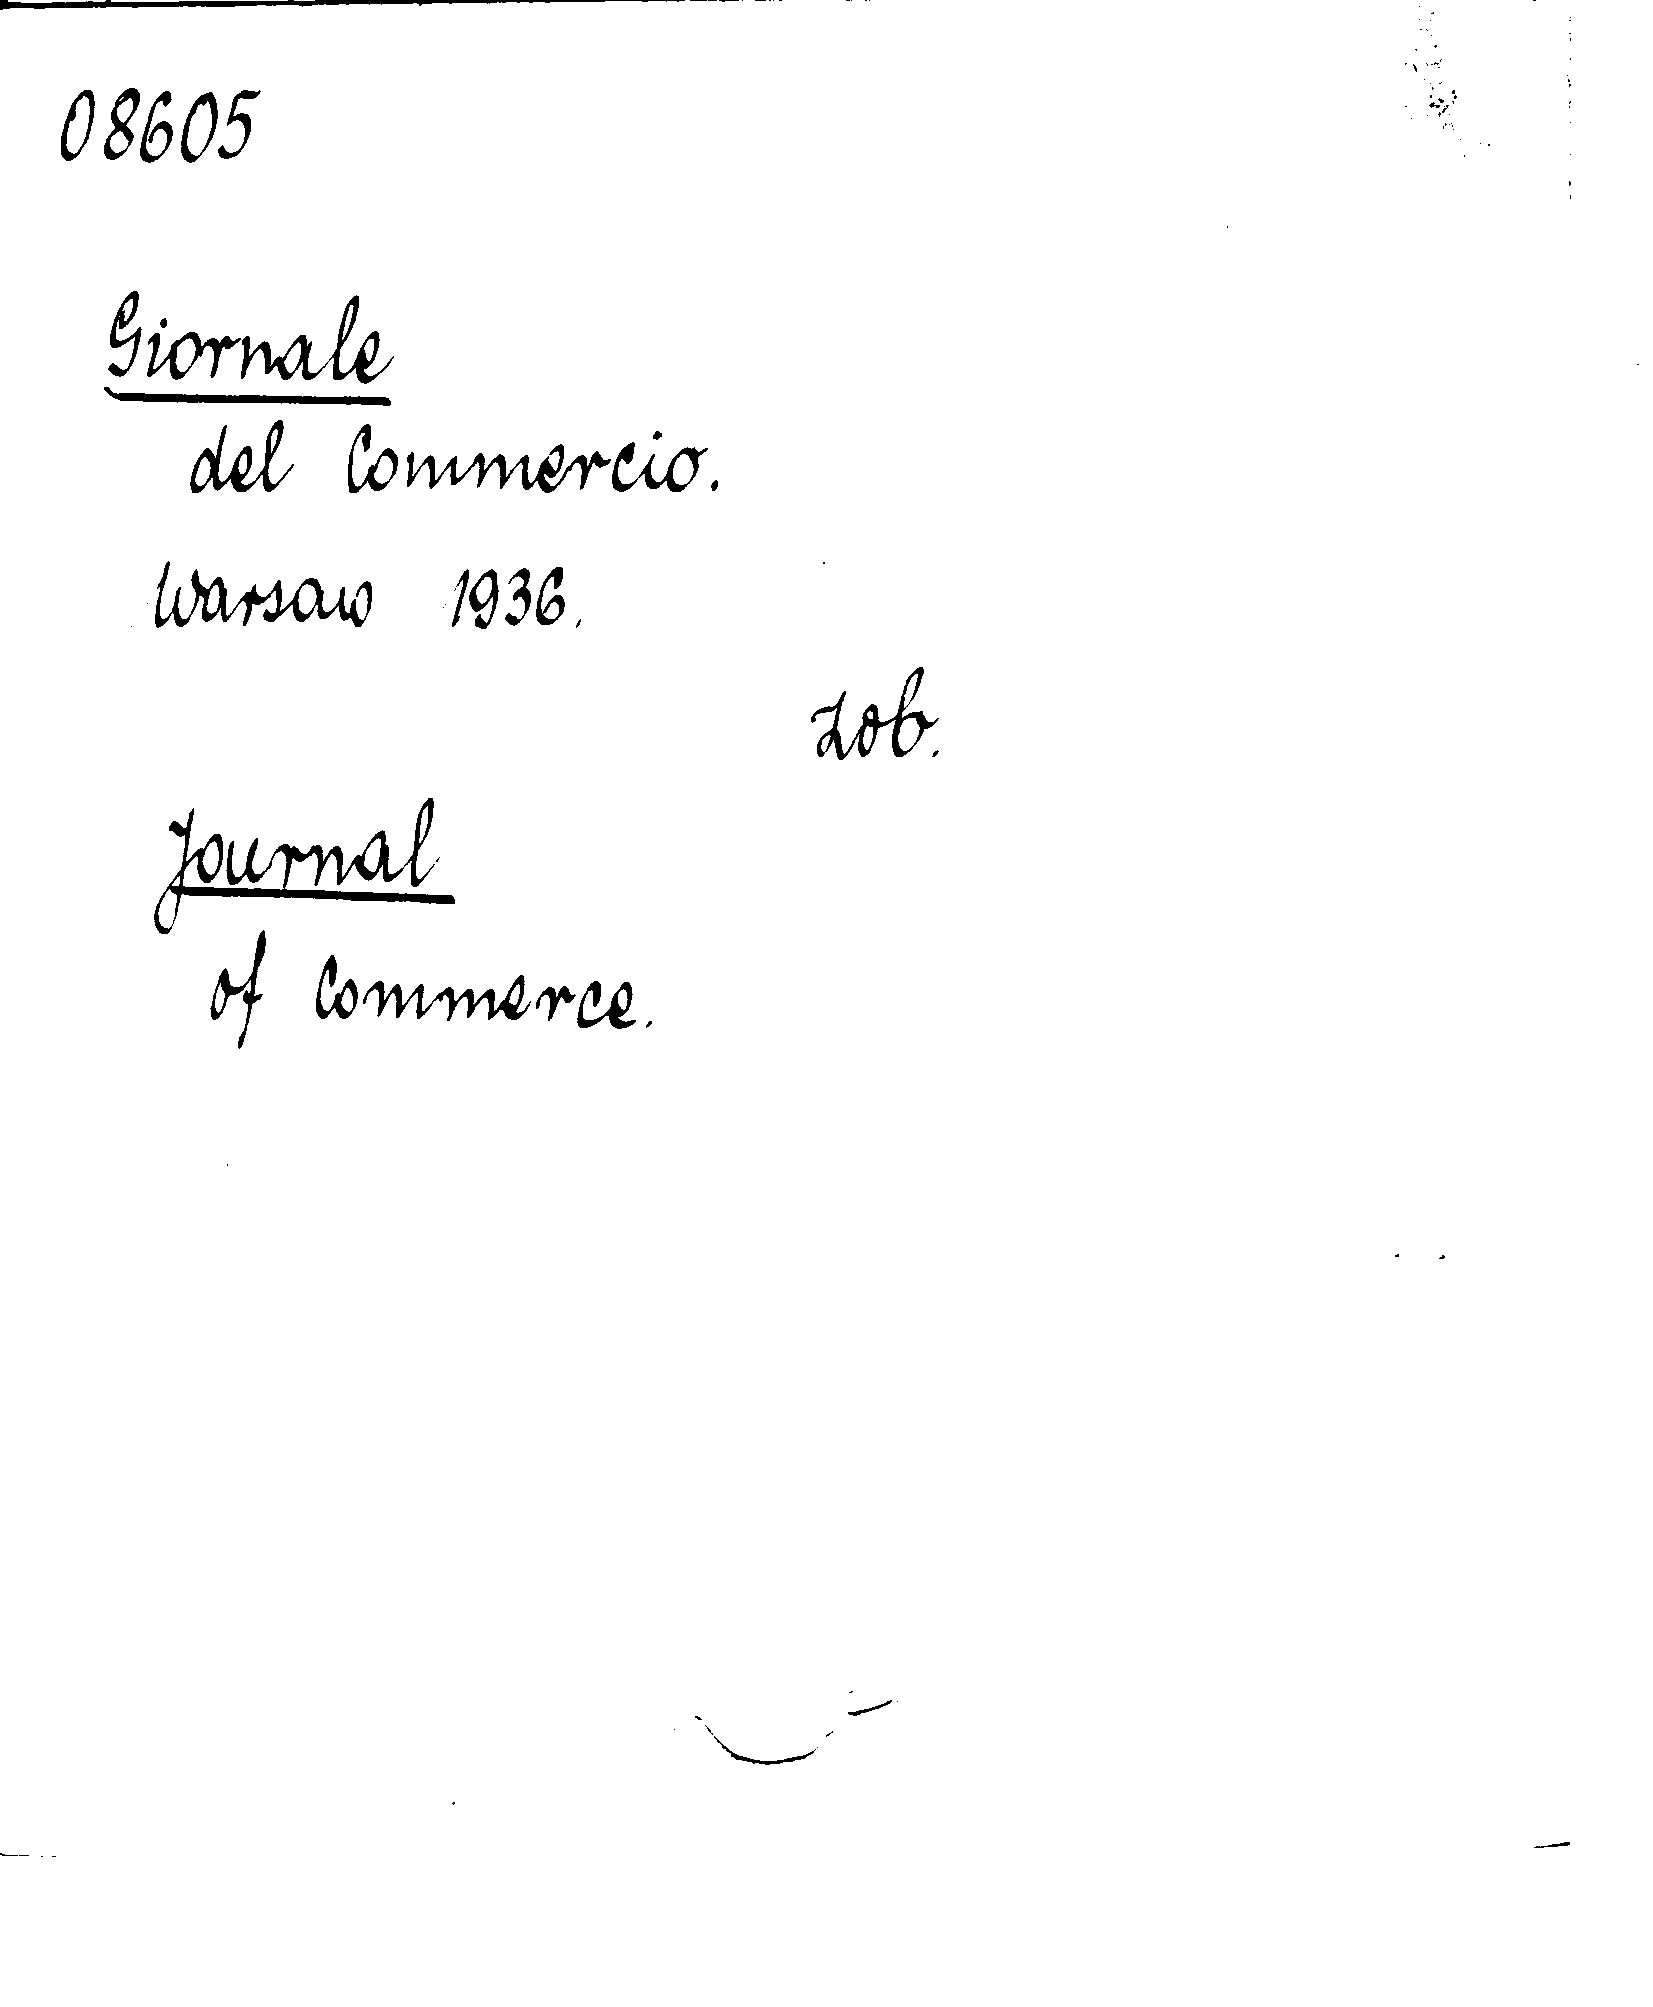 08605
Giornale
del Commercio.
Warsaw 1936.
Zob.
Journal
of Commerce.